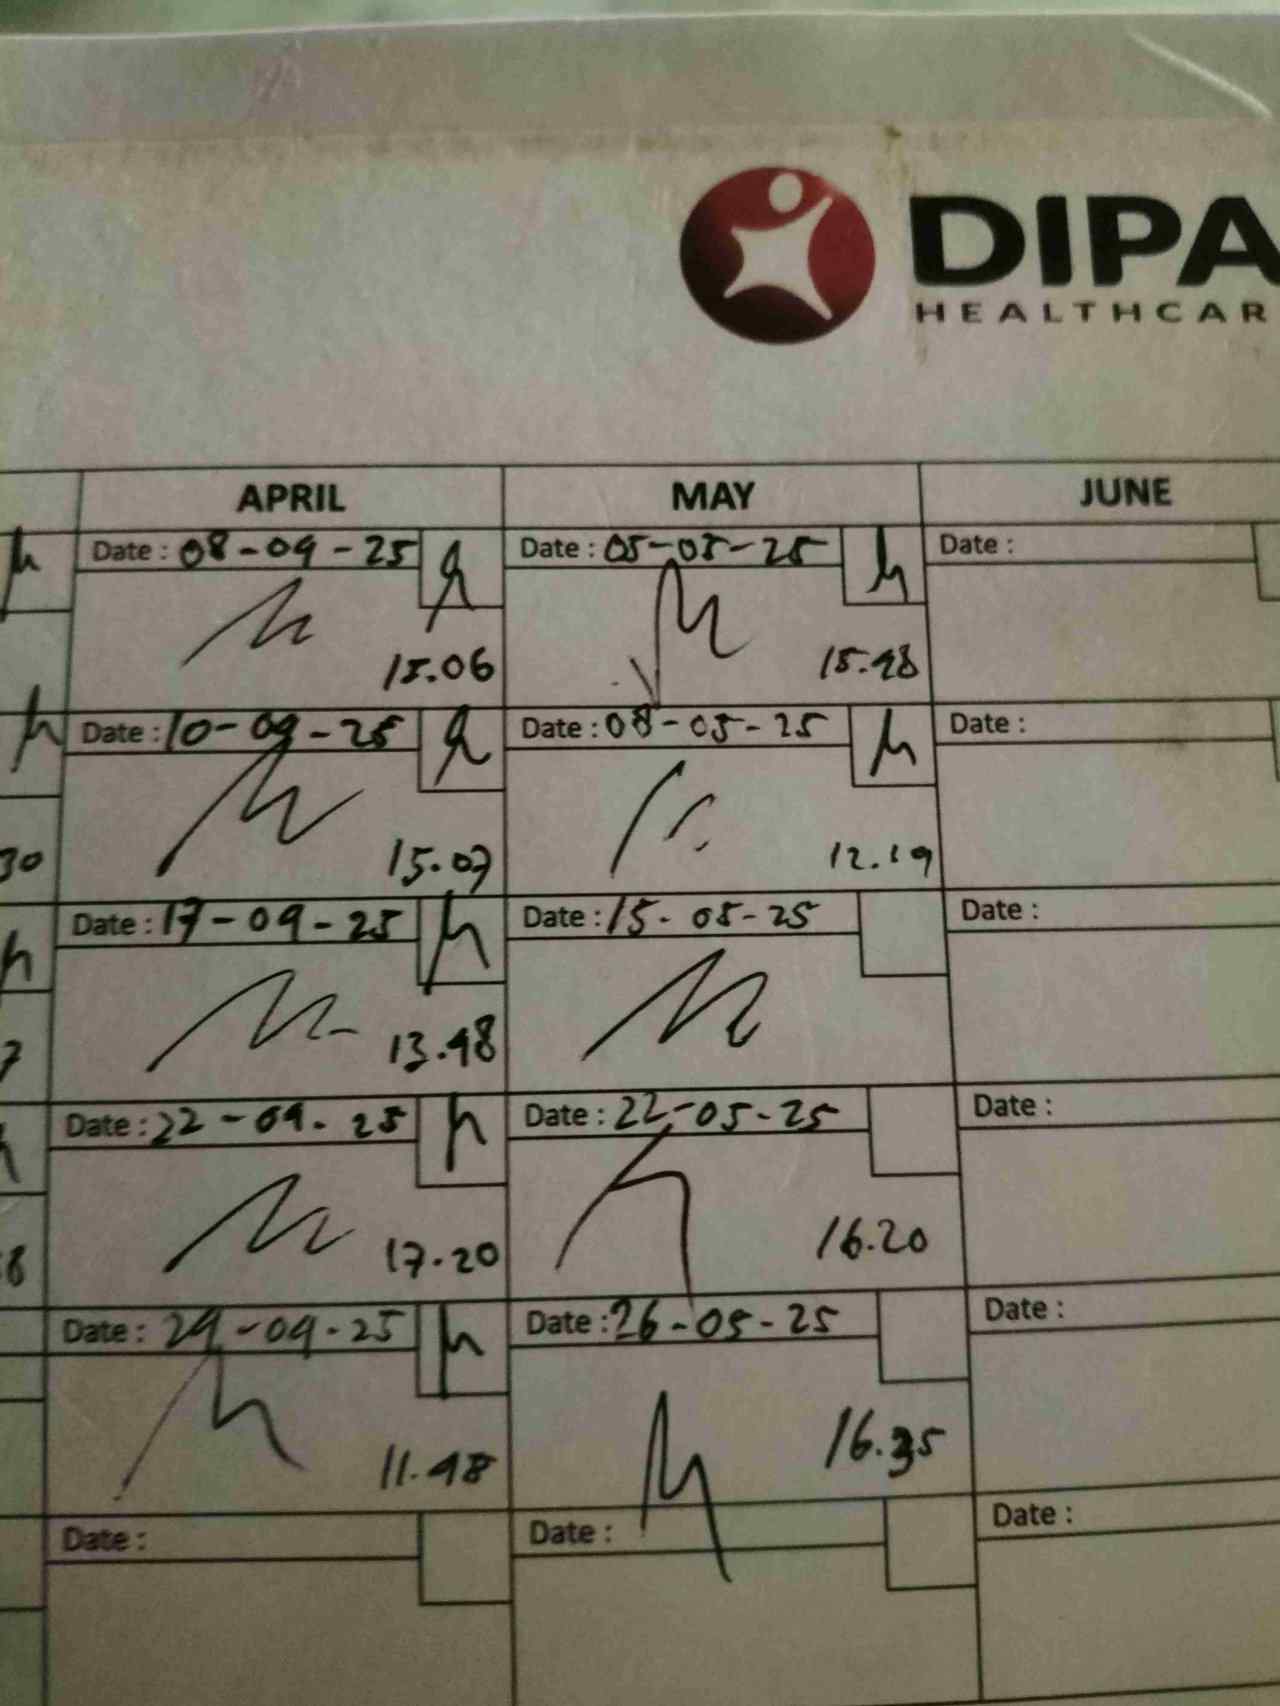 DIPA
HEALTHCAR
APRIL MAY JUNE
Date : 08-04-25 Date : 05-05-25 Date :
15.06 15.48
Date : 10-04-25 Date : 08-05-25 Date :
30 15.07 12.19
Date : 17-04-25 Date : 15-05-25 Date :
7 13.48
Date : 22-04-25 Date : 22-05-25 Date :
8 17.20 16.20
Date : 29-04-25 Date : 26-05-25 Date :
11.48 16.35
Date : Date : Date :